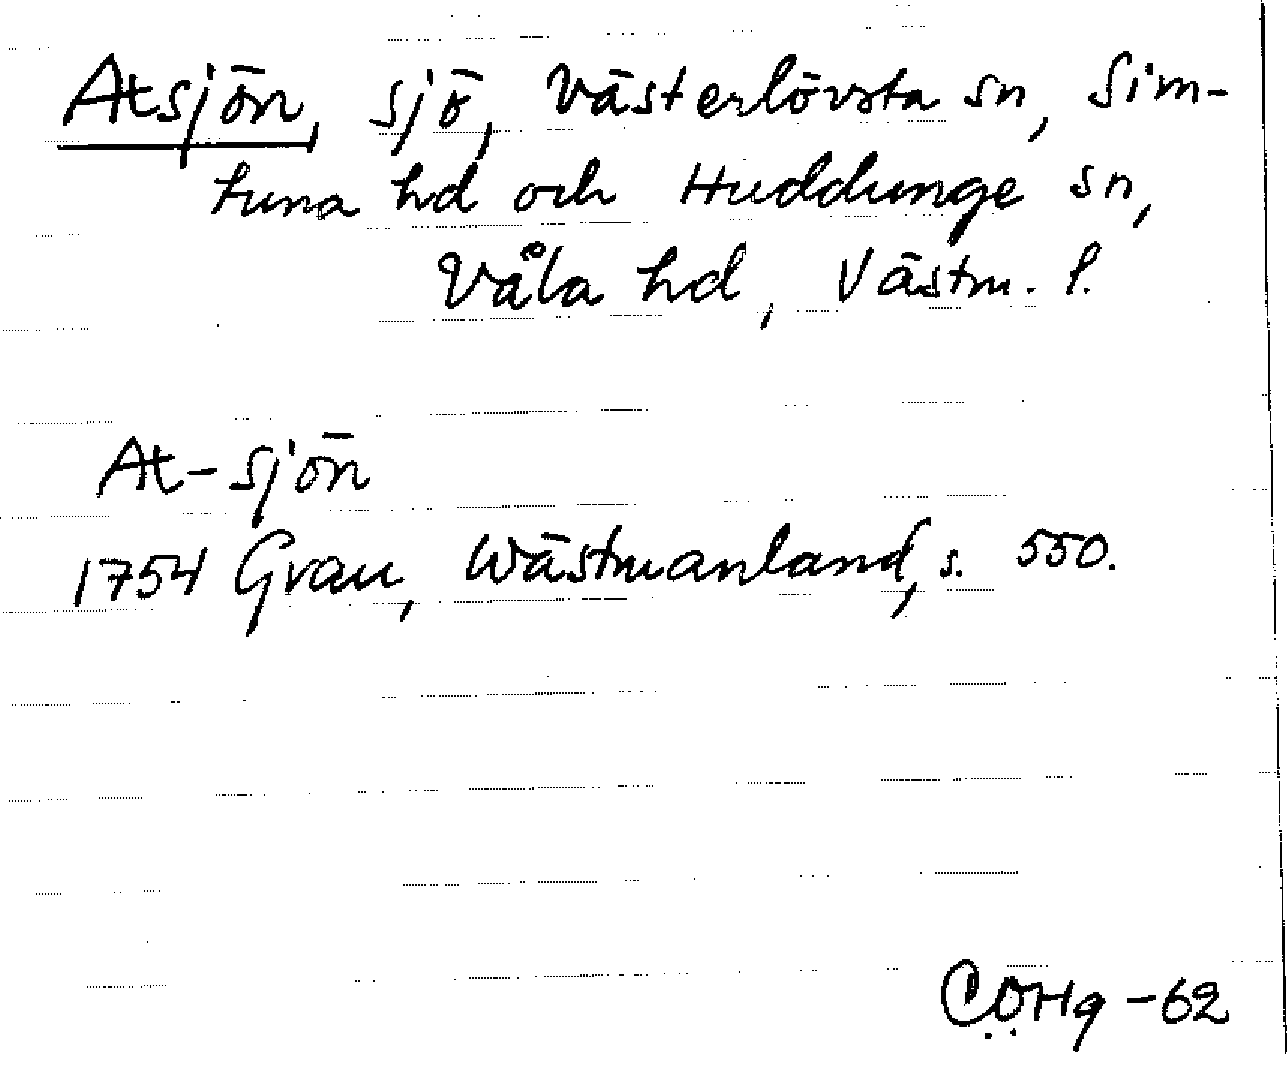 Atsjön, sjö, Västerlövsta sn, Sim-
tuna hd och Huddunge sn,
Våla hd, Västm. l.
At-sjön
1754 Grau, Wästmanland, s. 550.
C.Ö.Hg -62